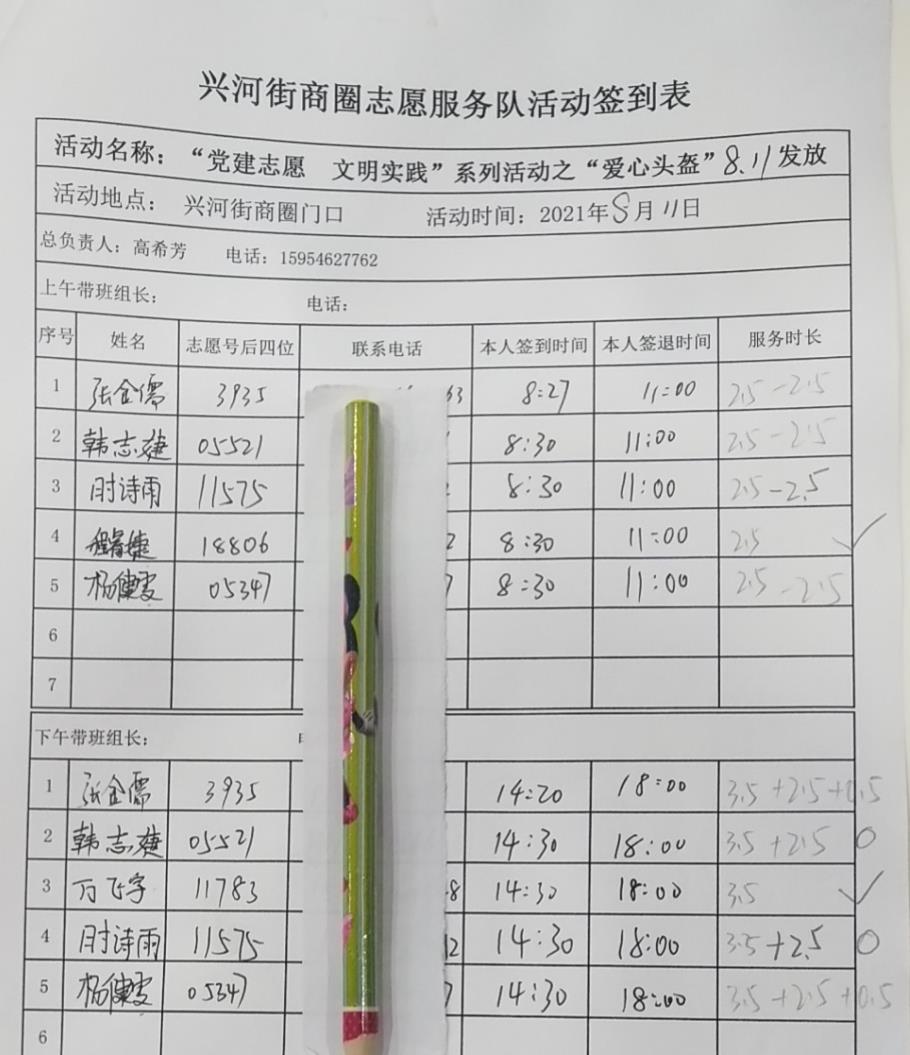 兴河街商圈志愿服务队活动签到表
活动名称：“党建志愿 文明实践”系列活动之“爱心头盔”8.11发放
活动地点： 兴河街商圈门口 活动时间：2021年8月11日
总负责人：高希芳 电话：15954627762
上午带班组长： 电话：
序号 姓名 志愿号后四位 联系电话 本人签到时间 本人签退时间 服务时长
1 张金儒 3935 63 8:27 11:00 2.5-2.5
2 韩志婕 05521 8:30 11:00 2.5-2.5
3 时诗雨 11575 8:30 11:00 2.5-2.5
4 18806 2 8:30 11:00 2.5 ✓
5 杨健雯 05347 7 8:30 11:00 2.5-2.5
6
7
下午带班组长：
1 张金儒 3935 14:20 18:00 3.5+2.5+0.5
2 韩志婕 05521 14:30 18:00 3.5+2.5 0
3 万飞宇 11783 8 14:30 18:00 3.5 ✓
4 时诗雨 11575 12 14:30 18:00 3.5+2.5 0
5 杨健雯 05347 7 14:30 18:00 3.5+2.5+0.5
6